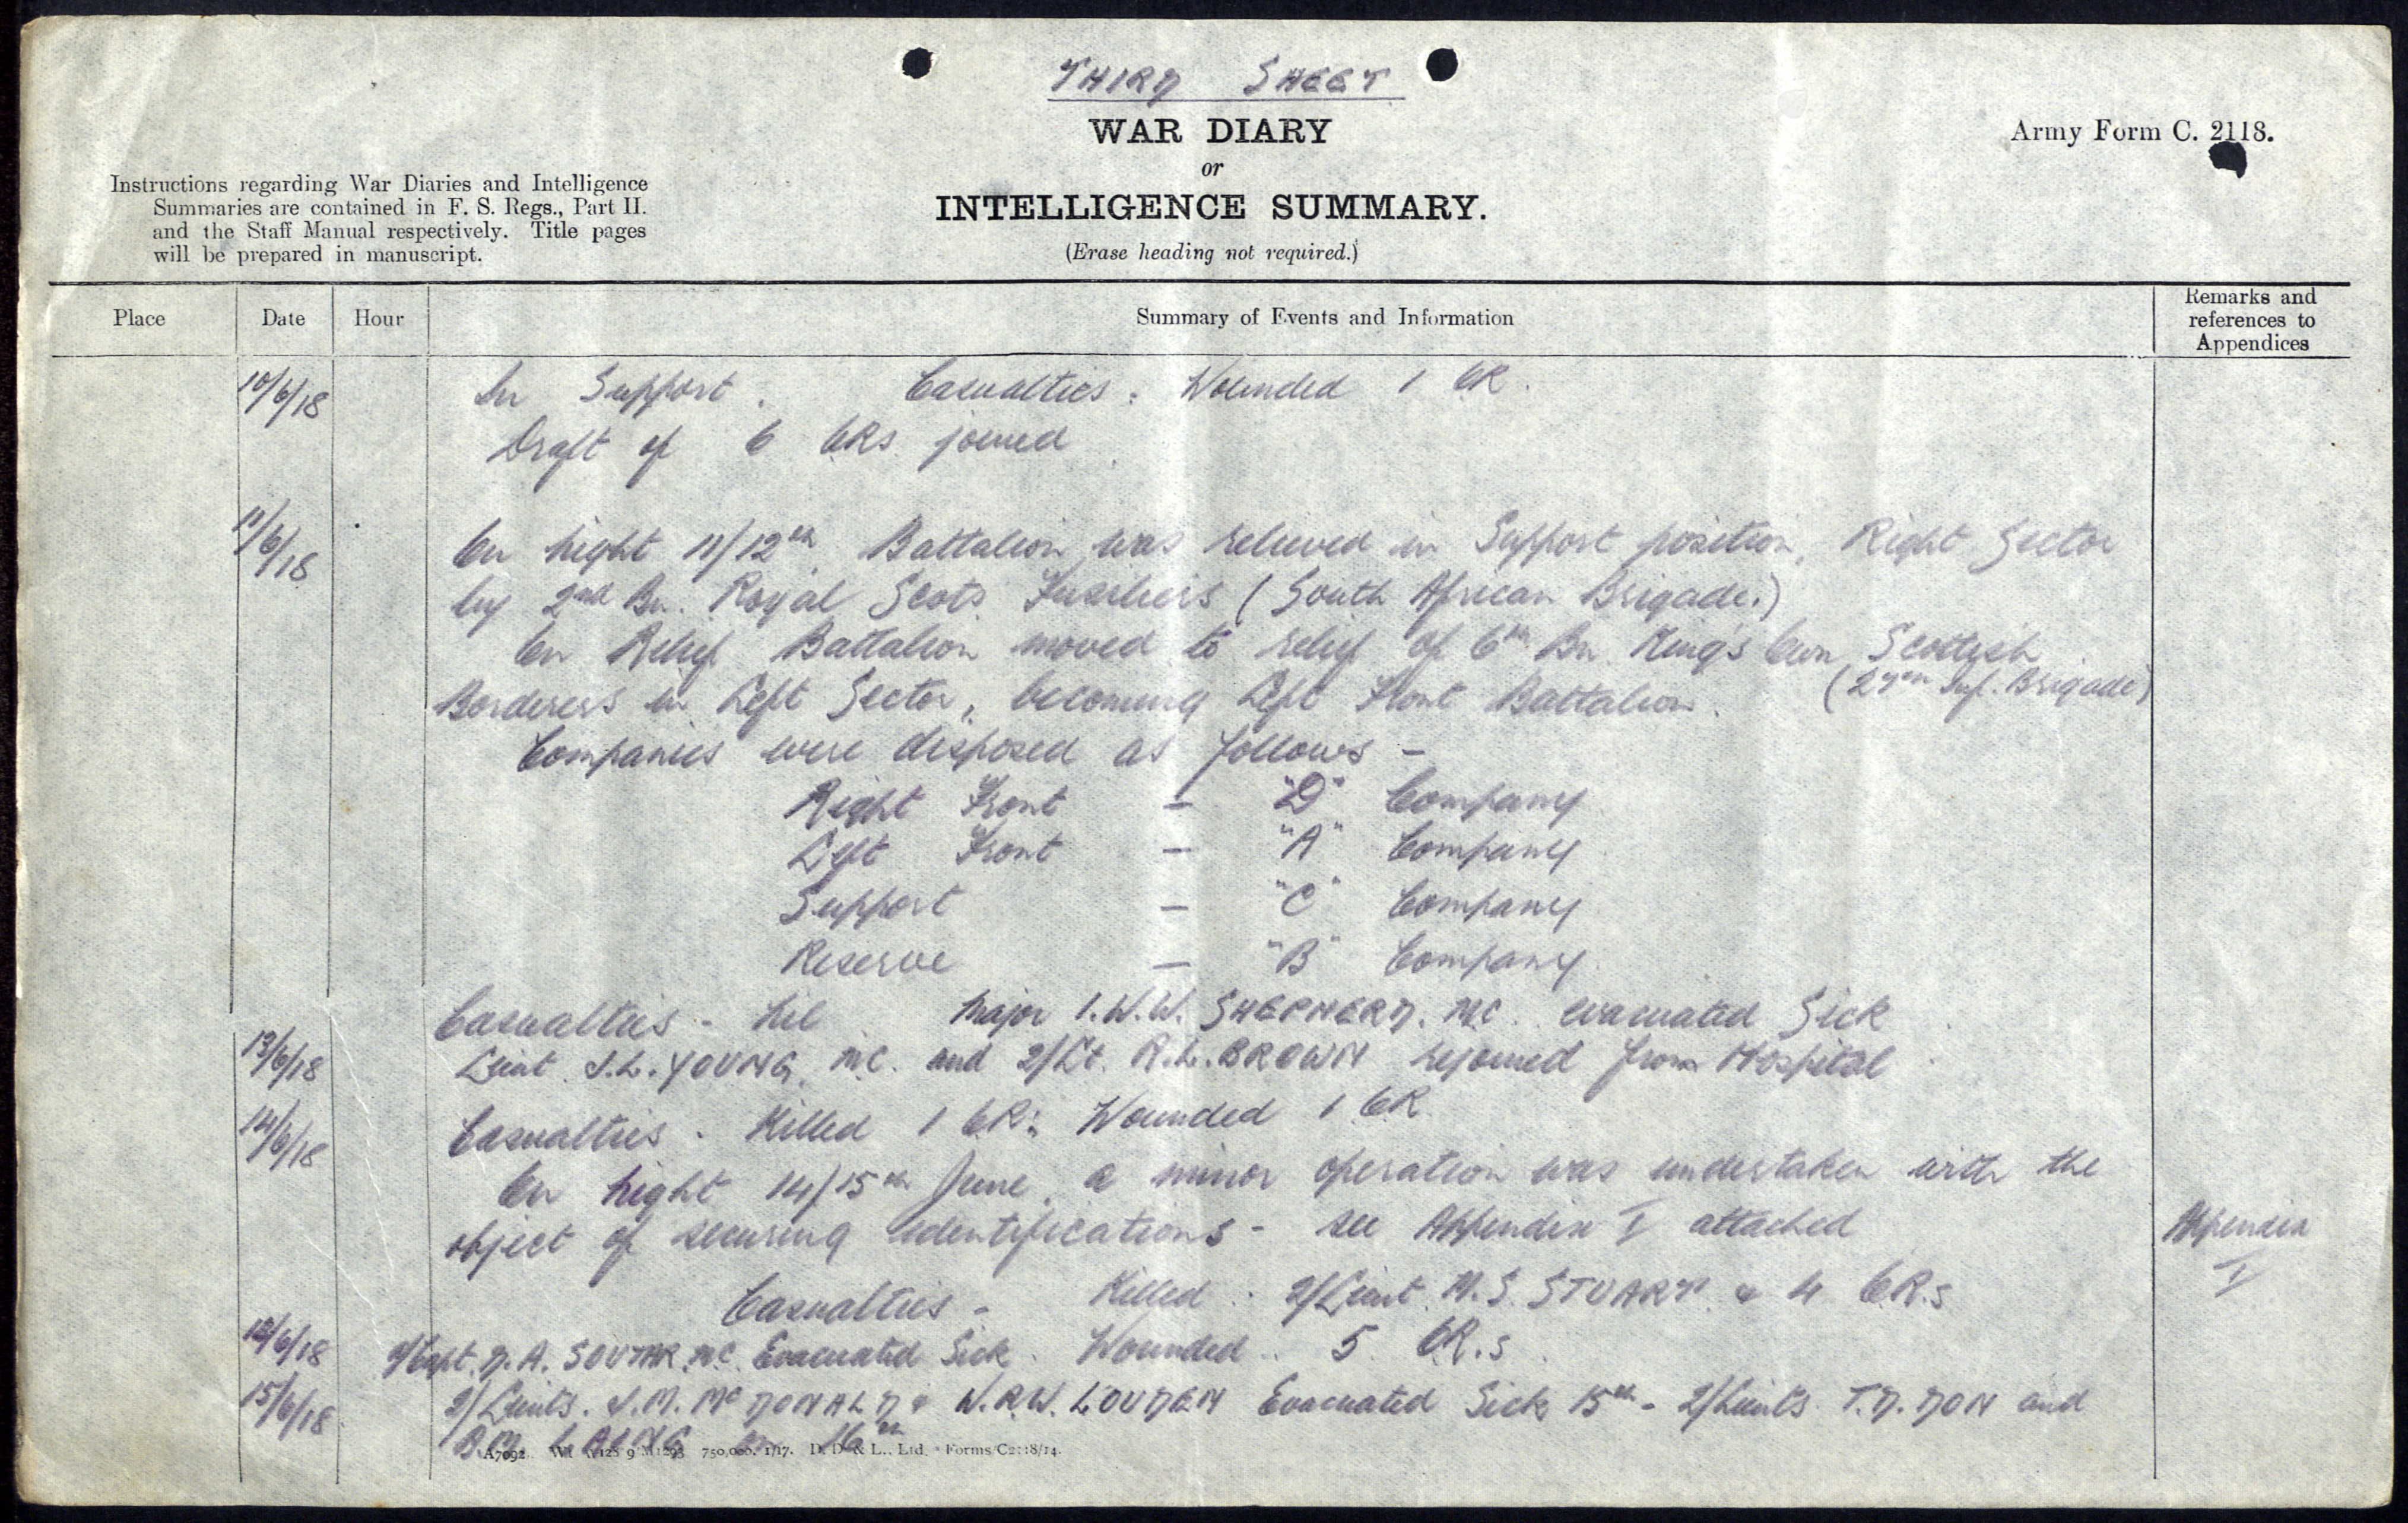 THIRD SHEET
WAR DIARY
or
INTELLIGENCE SUMMARY.
(Erase heading not required.)
Army Form C. 2118.
Instructions regarding War Diaries and Intelligence
Summaries are contained in F. S. Regs., Part II.
and the Staff Manual respectively. Title pages
will be prepared in manuscript.
Place Date Hour Summary of Events and Information Remarks and references to Appendices
10/6/18 In Support. Casualties: Wounded 1 OR.
Draft of 6 ORs joined
11/6/18 On night 11/12th Battalion was relieved in Support position, Right Sector
by 2nd Bn. Royal Scots Fusiliers (South African Brigade.)
On Relief Battalion moved to relief of 6th Bn King's Own Scottish
Borderers in Left Sector, becoming Left Front Battalion. (27th Inf. Brigade)
Companies were disposed as follows -
Right Front - "D" Company
Left Front - "A" Company
Support - "C" Company
Reserve - "B" Company
Casualties - Nil Major I.W.W. SHEPHERD. MC. evacuated Sick
13/6/18 Lieut J.L. YOUNG, M.C. and 2/Lt. R.L. BROWN rejoined from Hospital
14/6/18 Casualties. Killed 1 OR: Wounded 1 OR
On night 14/15th June, a minor operation was undertaken with the
object of securing identifications - see Appendix I attached Appendix I
Casualties - Killed. 2/Lieut. M.S. STUART & 4 O.R.s
12/6/18 A/Capt. D.A. SOUTAR MC. Evacuated Sick. Wounded 5 OR.s
15/6/18 2/Lieuts. J.M. McDONALD & W.R.W. LOUDEN Evacuated Sick 15th - 2/Lieuts T.D. DON and
B.M. LAING 16th
A7092. 750,000. 1/17. D. D & L., Ltd. Forms/C2118/14.